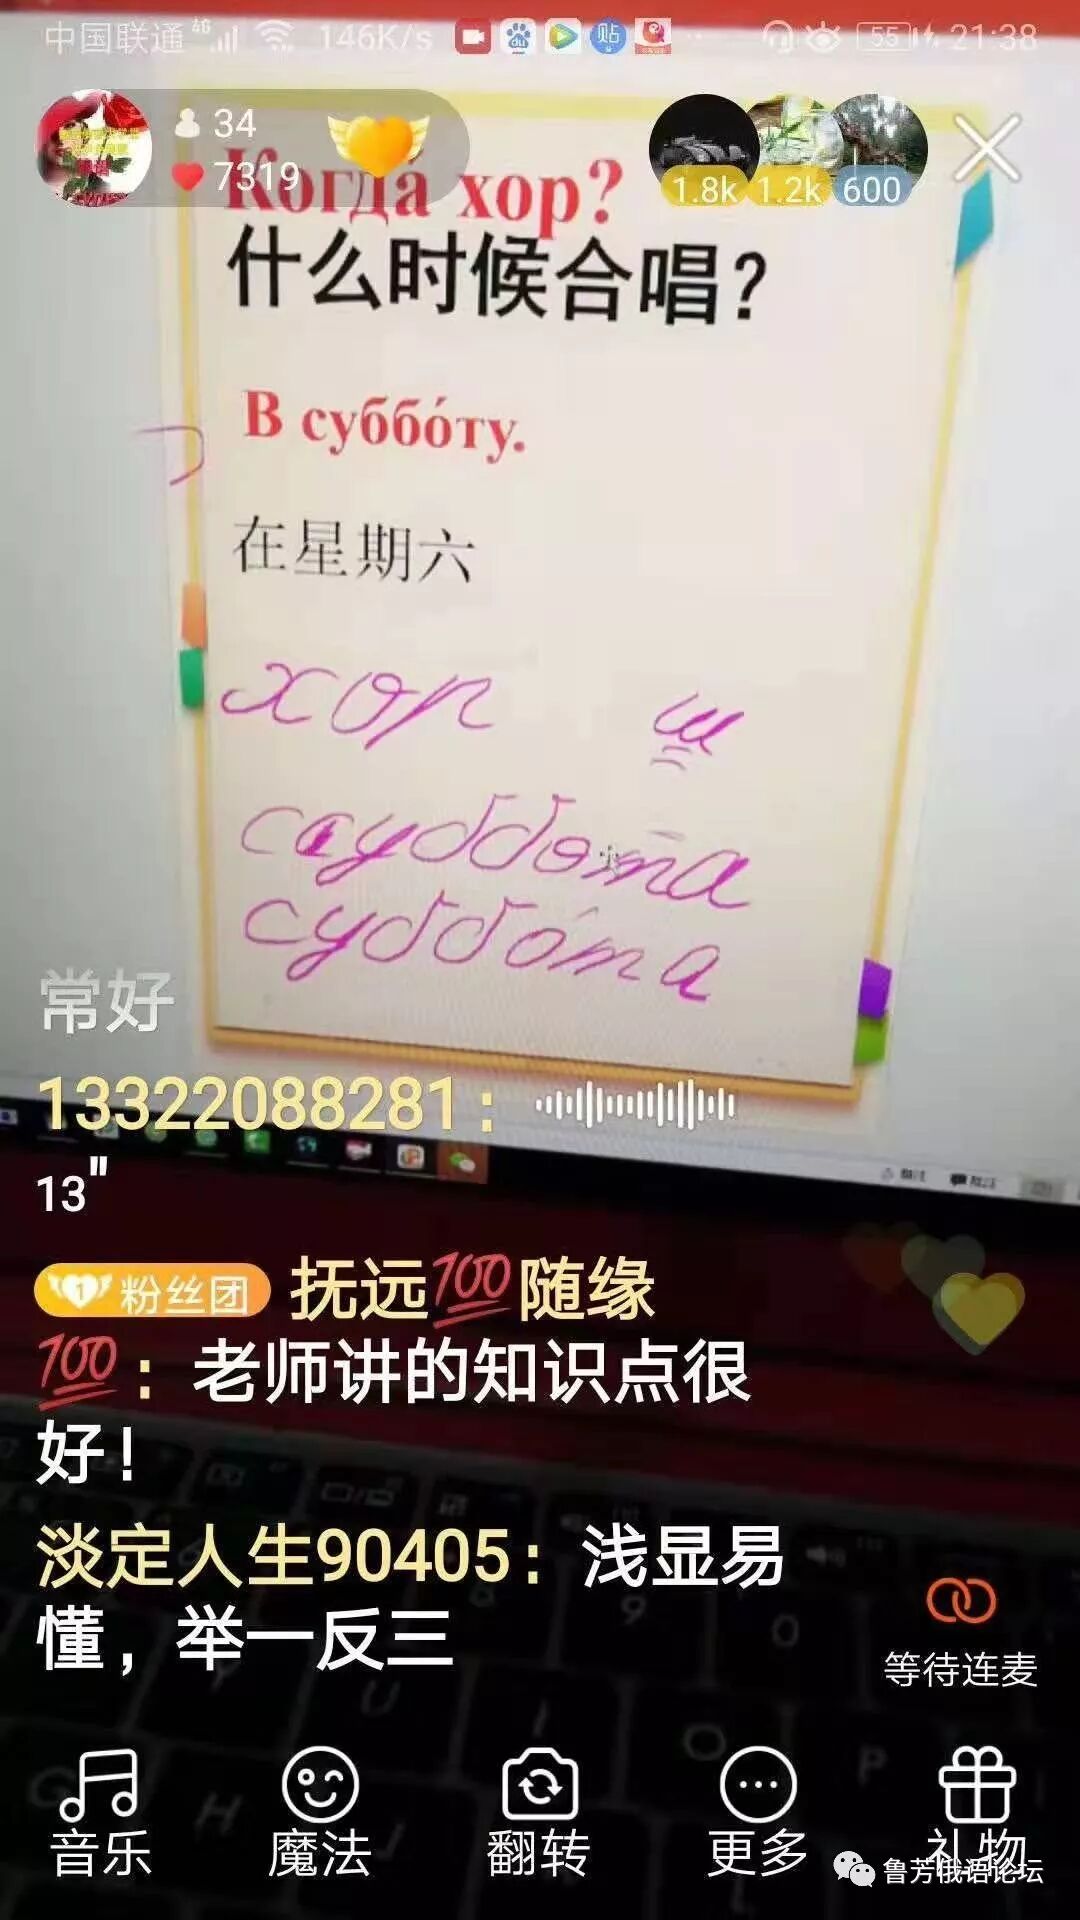 中国联通 4G 146K/s 贴 55 21:38
34
7319
1.8k 1.2k 600
Когда хор?
什么时候合唱?
В суббо́ту.
在星期六
хор ш
сауббота
суббо́та
常好
13322088281:
13"
1 粉丝团 抚远💯随缘
💯:老师讲的知识点很
好!
淡定人生90405:浅显易
懂,举一反三
等待连麦
音乐 魔法 翻转 更多 礼物
鲁芳俄语论坛